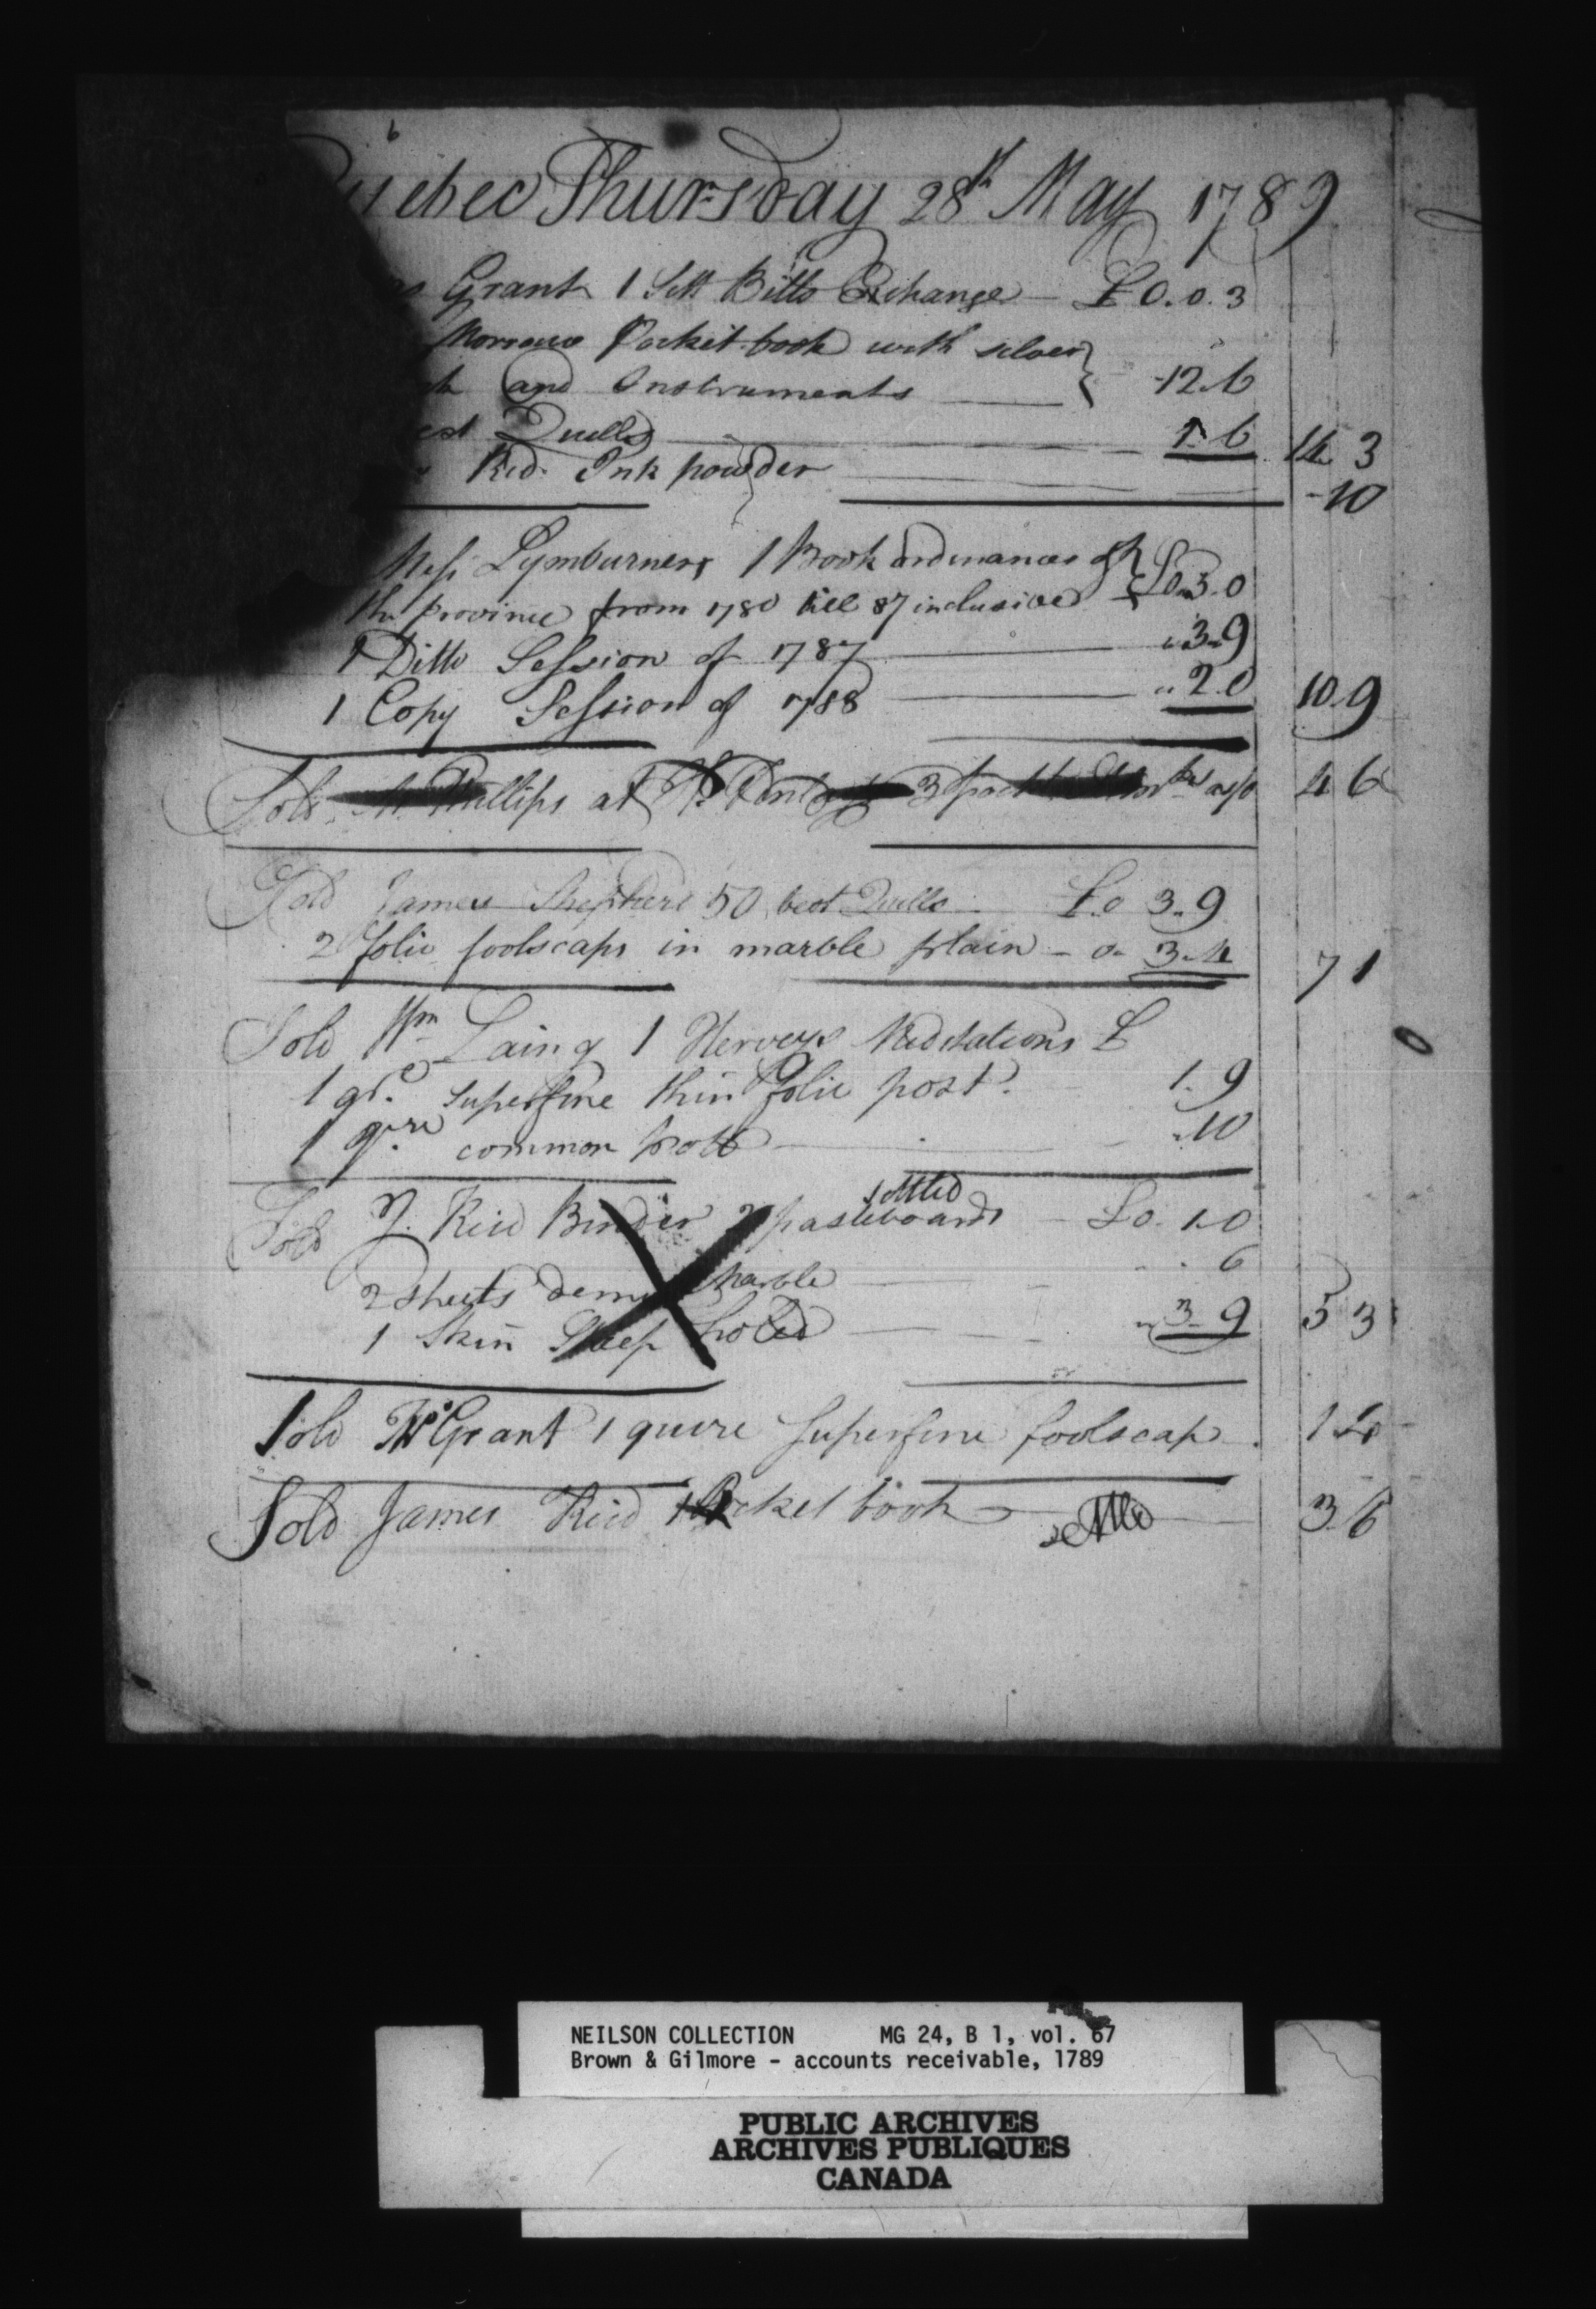 Quebec Thursday 28th May 1789
Grant 1 Sett Bills Exchange — £0.0.3
Morroco Pocket book with silver
and Instruments — 12.6
est Quills — 1.6 14 3
Red Ink powder — -10
Messrs Lymburners 1 Book ordinances of
the province from 1780 till 87 inclusived £0.3.0
1 Ditto Session of 1787 — "3.9
1 Copy Session of 1788 — "2.0 10.9
Sold Phillips at 3 4 6
Sold James Shepherd 50 best Quills £.0 3.9
2 folio foolscaps in marble plain — 0. 3.4 7 1
Sold Wm Laing 1 Herveys Meditations £
1 qre superfine thin folio post. 1.9
1 qre common pott — .10
settled
Sold J. Reid Binder 2 pasteboards — £0. 1.0
2 sheets demy Marble — 6
1 Skin Sheep — "3.9 5 3
Sold Wm Grant 1 quire superfine foolscap. 1.4
Sold James Reid 1 Pocket book — settled 3.6
NEILSON COLLECTION MG 24, B 1, vol. 67
Brown & Gilmore - accounts receivable, 1789
PUBLIC ARCHIVES
ARCHIVES PUBLIQUES
CANADA